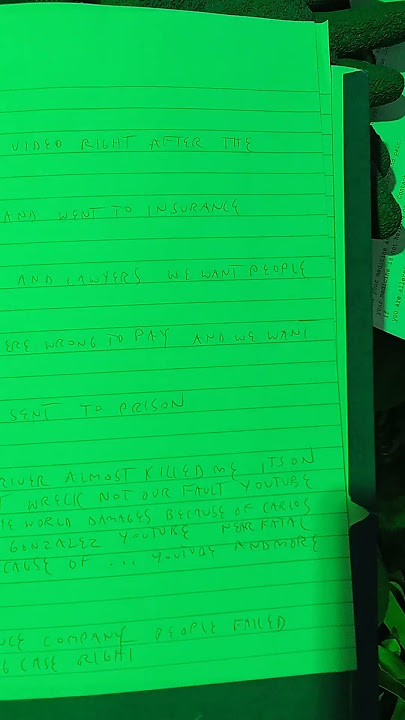 VIDEO RIGHT AFTER THE
AND WENT TO INSURANCE
AND LAWYERS WE WANT PEOPLE
ERE WRONG TO PAY AND WE WANT
SENT TO PRISON
RIVER ALMOST KILLED ME ITS ON
WRECK NOT OUR FAULT YOUTUBE
HE WORLD DAMAGES BECAUSE OF CARLOS
GONZALEZ YOUTUBE NEAR FATAL
CAUSE OF ... YOUTUBE AND MORE
NCE COMPANY PEOPLE FAILED
G CASE RIGHT
your medicine
your medicine is not
If
you are